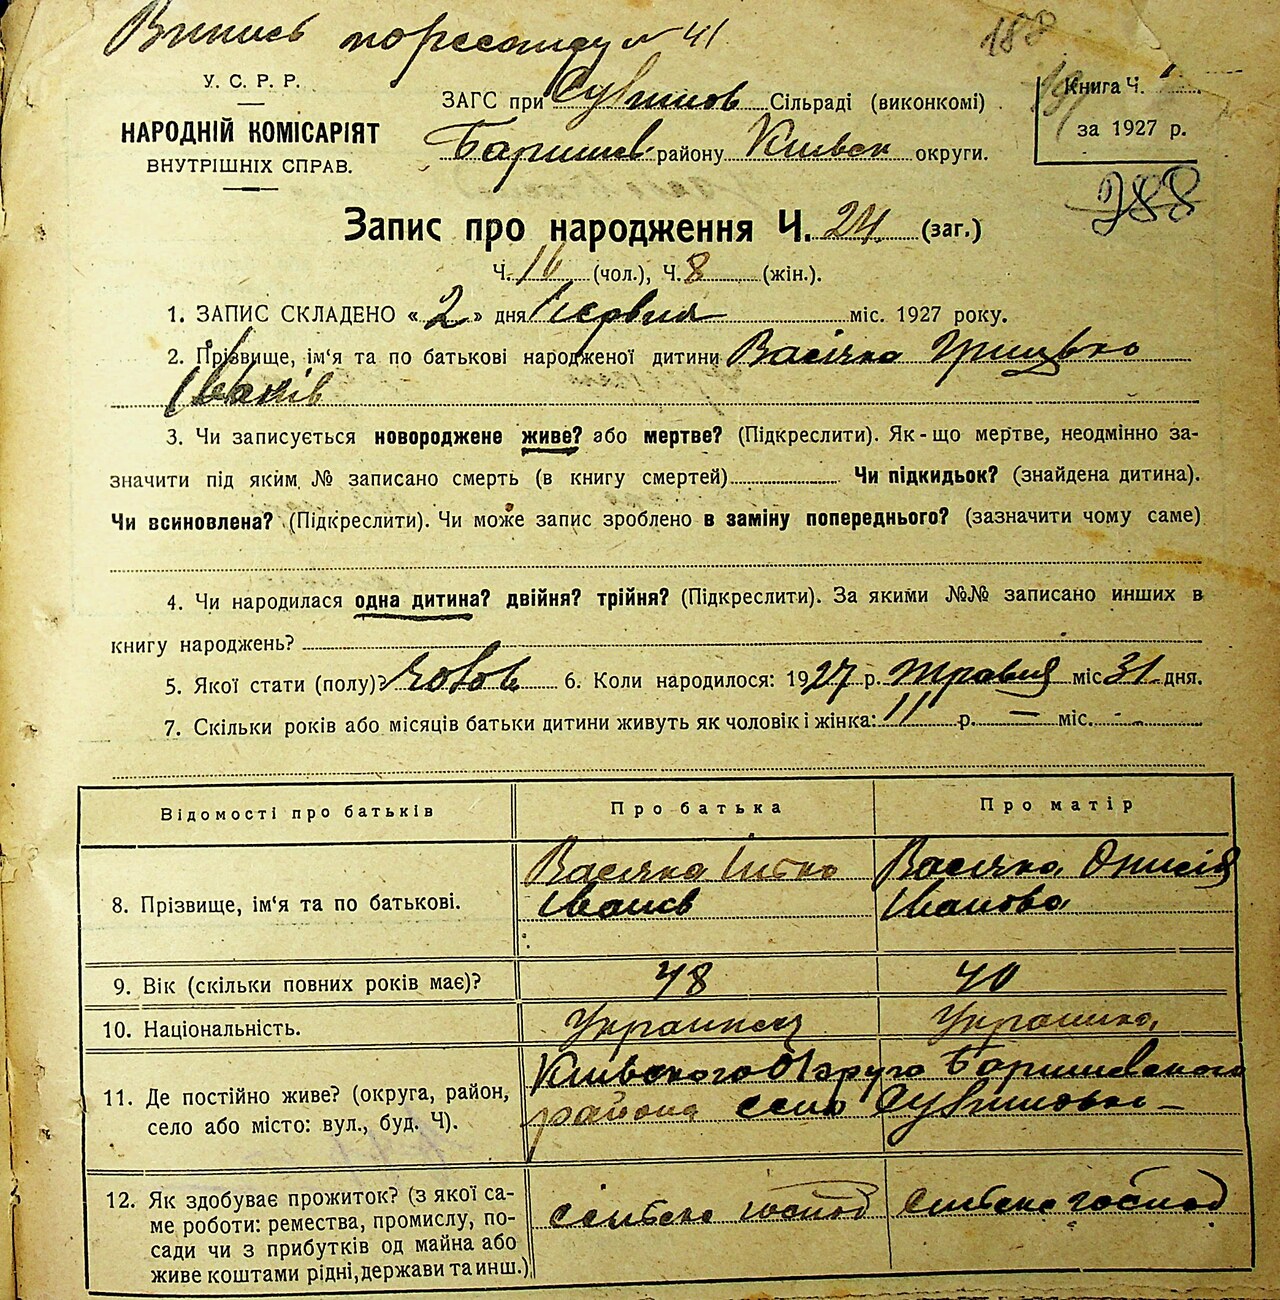 Випись № 41
188
У. С. Р. Р.
НАРОДНІЙ КОМІСАРІЯТ
ВНУТРІШНІХ СПРАВ.
ЗАГС при Сільраді (виконкомі)
Баришев району Київськ округи.
Книга Ч.
за 1927 р.
288
Запис про народження Ч. 24 (заг.)
Ч. 16 (чол.), Ч. 8 (жін.).
1. ЗАПИС СКЛАДЕНО « 2 » дня Червня міс. 1927 року.
2. Прізвище, ім'я та по батькові народженої дитини Васічко Грицько
Іванів
3. Чи записується новороджене живе? або мертве? (Підкреслити). Як-що мертве, неодмінно за-
значити під яким № записано смерть (в книгу смертей) Чи підкидьок? (знайдена дитина).
Чи всиновлена? (Підкреслити). Чи може запис зроблено в заміну попереднього? (зазначити чому саме)
4. Чи народилася одна дитина? двійня? трійня? (Підкреслити). За якими №№ записано инших в
книгу народжень?
5. Якої стати (полу)? 6. Коли народилося: 1927 р. Травня міс. 31 дня.
7. Скільки років або місяців батьки дитини живуть як чоловік і жінка: 11 р. — міс. -
Відомості про батьків Про батька Про матір
8. Прізвище, ім'я та по батькові.
Васічко
Іванів
Васічко Онисія
Іванова
9. Вік (скільки повних років має)? 48 40
10. Національність. Украинец Украинка
11. Де постійно живе? (округа, район,
село або місто: вул., буд. Ч).
Київского Округа Баришевского
района село
12. Як здобуває прожиток? (з якої са-
ме роботи: ремества, промислу, по-
сади чи з прибутків од майна або
живе коштами рідні, держави та инш.)
господ
господ